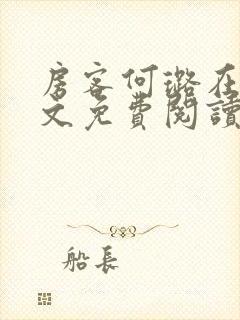 房客何璐在
文免費閱讀
船長